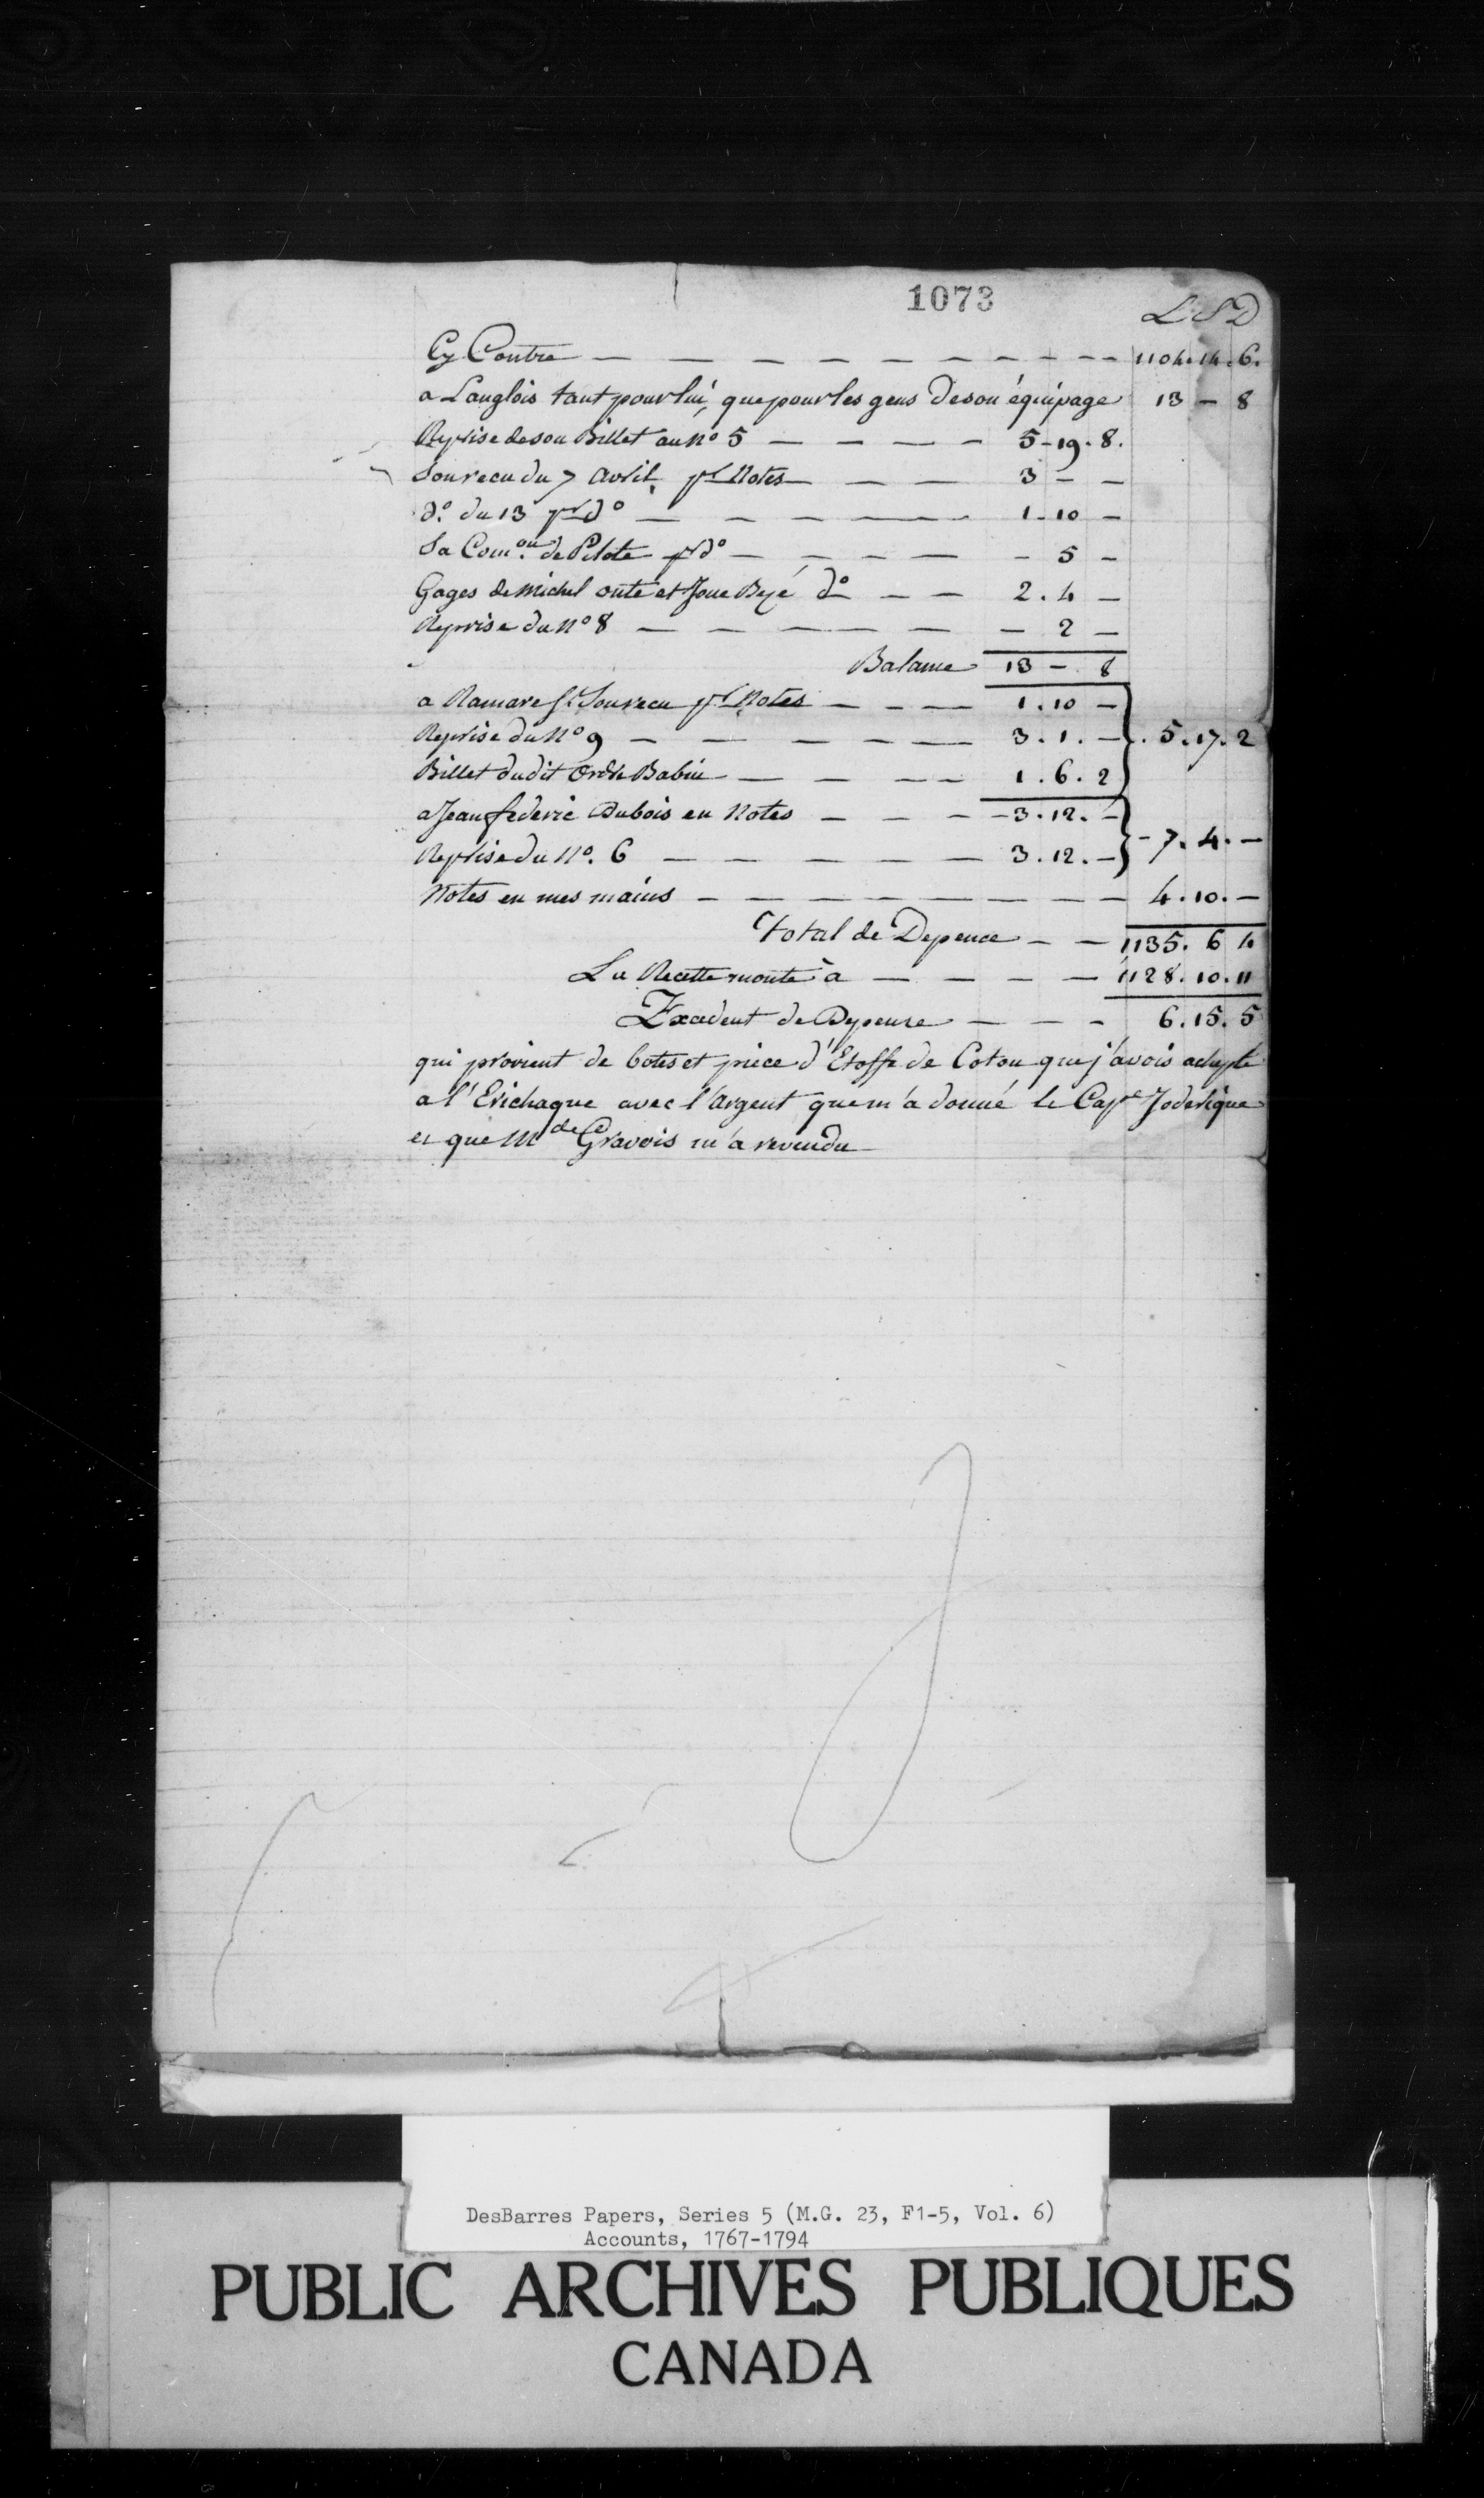 1073
L S D
Cy Contre — — — — — — — — — 1104.14.6.
a Langlois tant pour lui, que pour les gens de son équipage 13 — 8
Reprise de son Billet au No 5 — — — — 5-19.8.
Son recu du 7 avril, pr Notes — — — 3 — —
do. du 13 pr do — — — — — 1-10 —
Sa Comon. de Pilote pr do — — — — — 5 —
Gages de Michel onté et do — — 2.4 —
Reprise du No 8 — — — — — — 2 —
Balance 13 — 8
a Ramare Son recu pr Notes — — — 1.10 —
Reprise du No 9 — — — — — 3.1. — . 5.17.2
Billet dudit Ordre Babin — — — — 1.6.2
a Jean federic Dubois en Notes — — — 3.12. —
Reprise du No. 6 — — — — — 3.12. — - 7.4. —
Notes en mes mains — — — — — — — — — 4.10. —
Total de Depence — — 1135. 6 4
La Recette monte à — — — — 1128.10.11
Exedent de Depense — — - 6.15.5
qui provient de botes et piece d'Etoffe de Coton que j'avois
a l'Erichaque avec l'argent que m'a donné le Cape Joderique
et que Mde Gravois m'a revendu
DesBarres Papers, Series 5 (M.G. 23, F1-5, Vol. 6)
Accounts, 1767-1794
PUBLIC ARCHIVES PUBLIQUES
CANADA